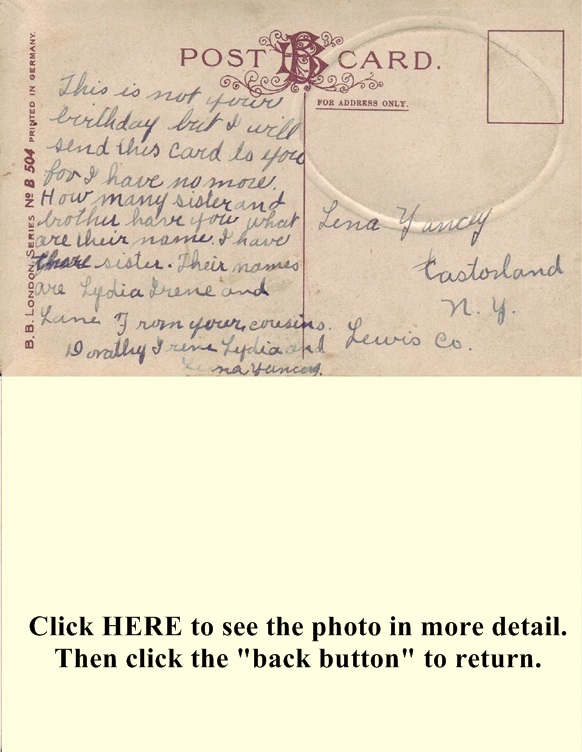 POST CARD.
FOR ADDRESS ONLY.
B.B. LONDON, SERIES Nº B 504 PRINTED IN GERMANY.
This is not your
birthday but I will
send this card to you
for I have no more.
How many sister and
brother have you what
are their name. I have
sister. Their names
are Lydia Irene and
Lane From your cousins.
Dorathy Irene Lydia and
Yancey.
Lena Yancey
Castorland
N. Y.
Lewis Co.
Click HERE to see the photo in more detail.
Then click the "back button" to return.